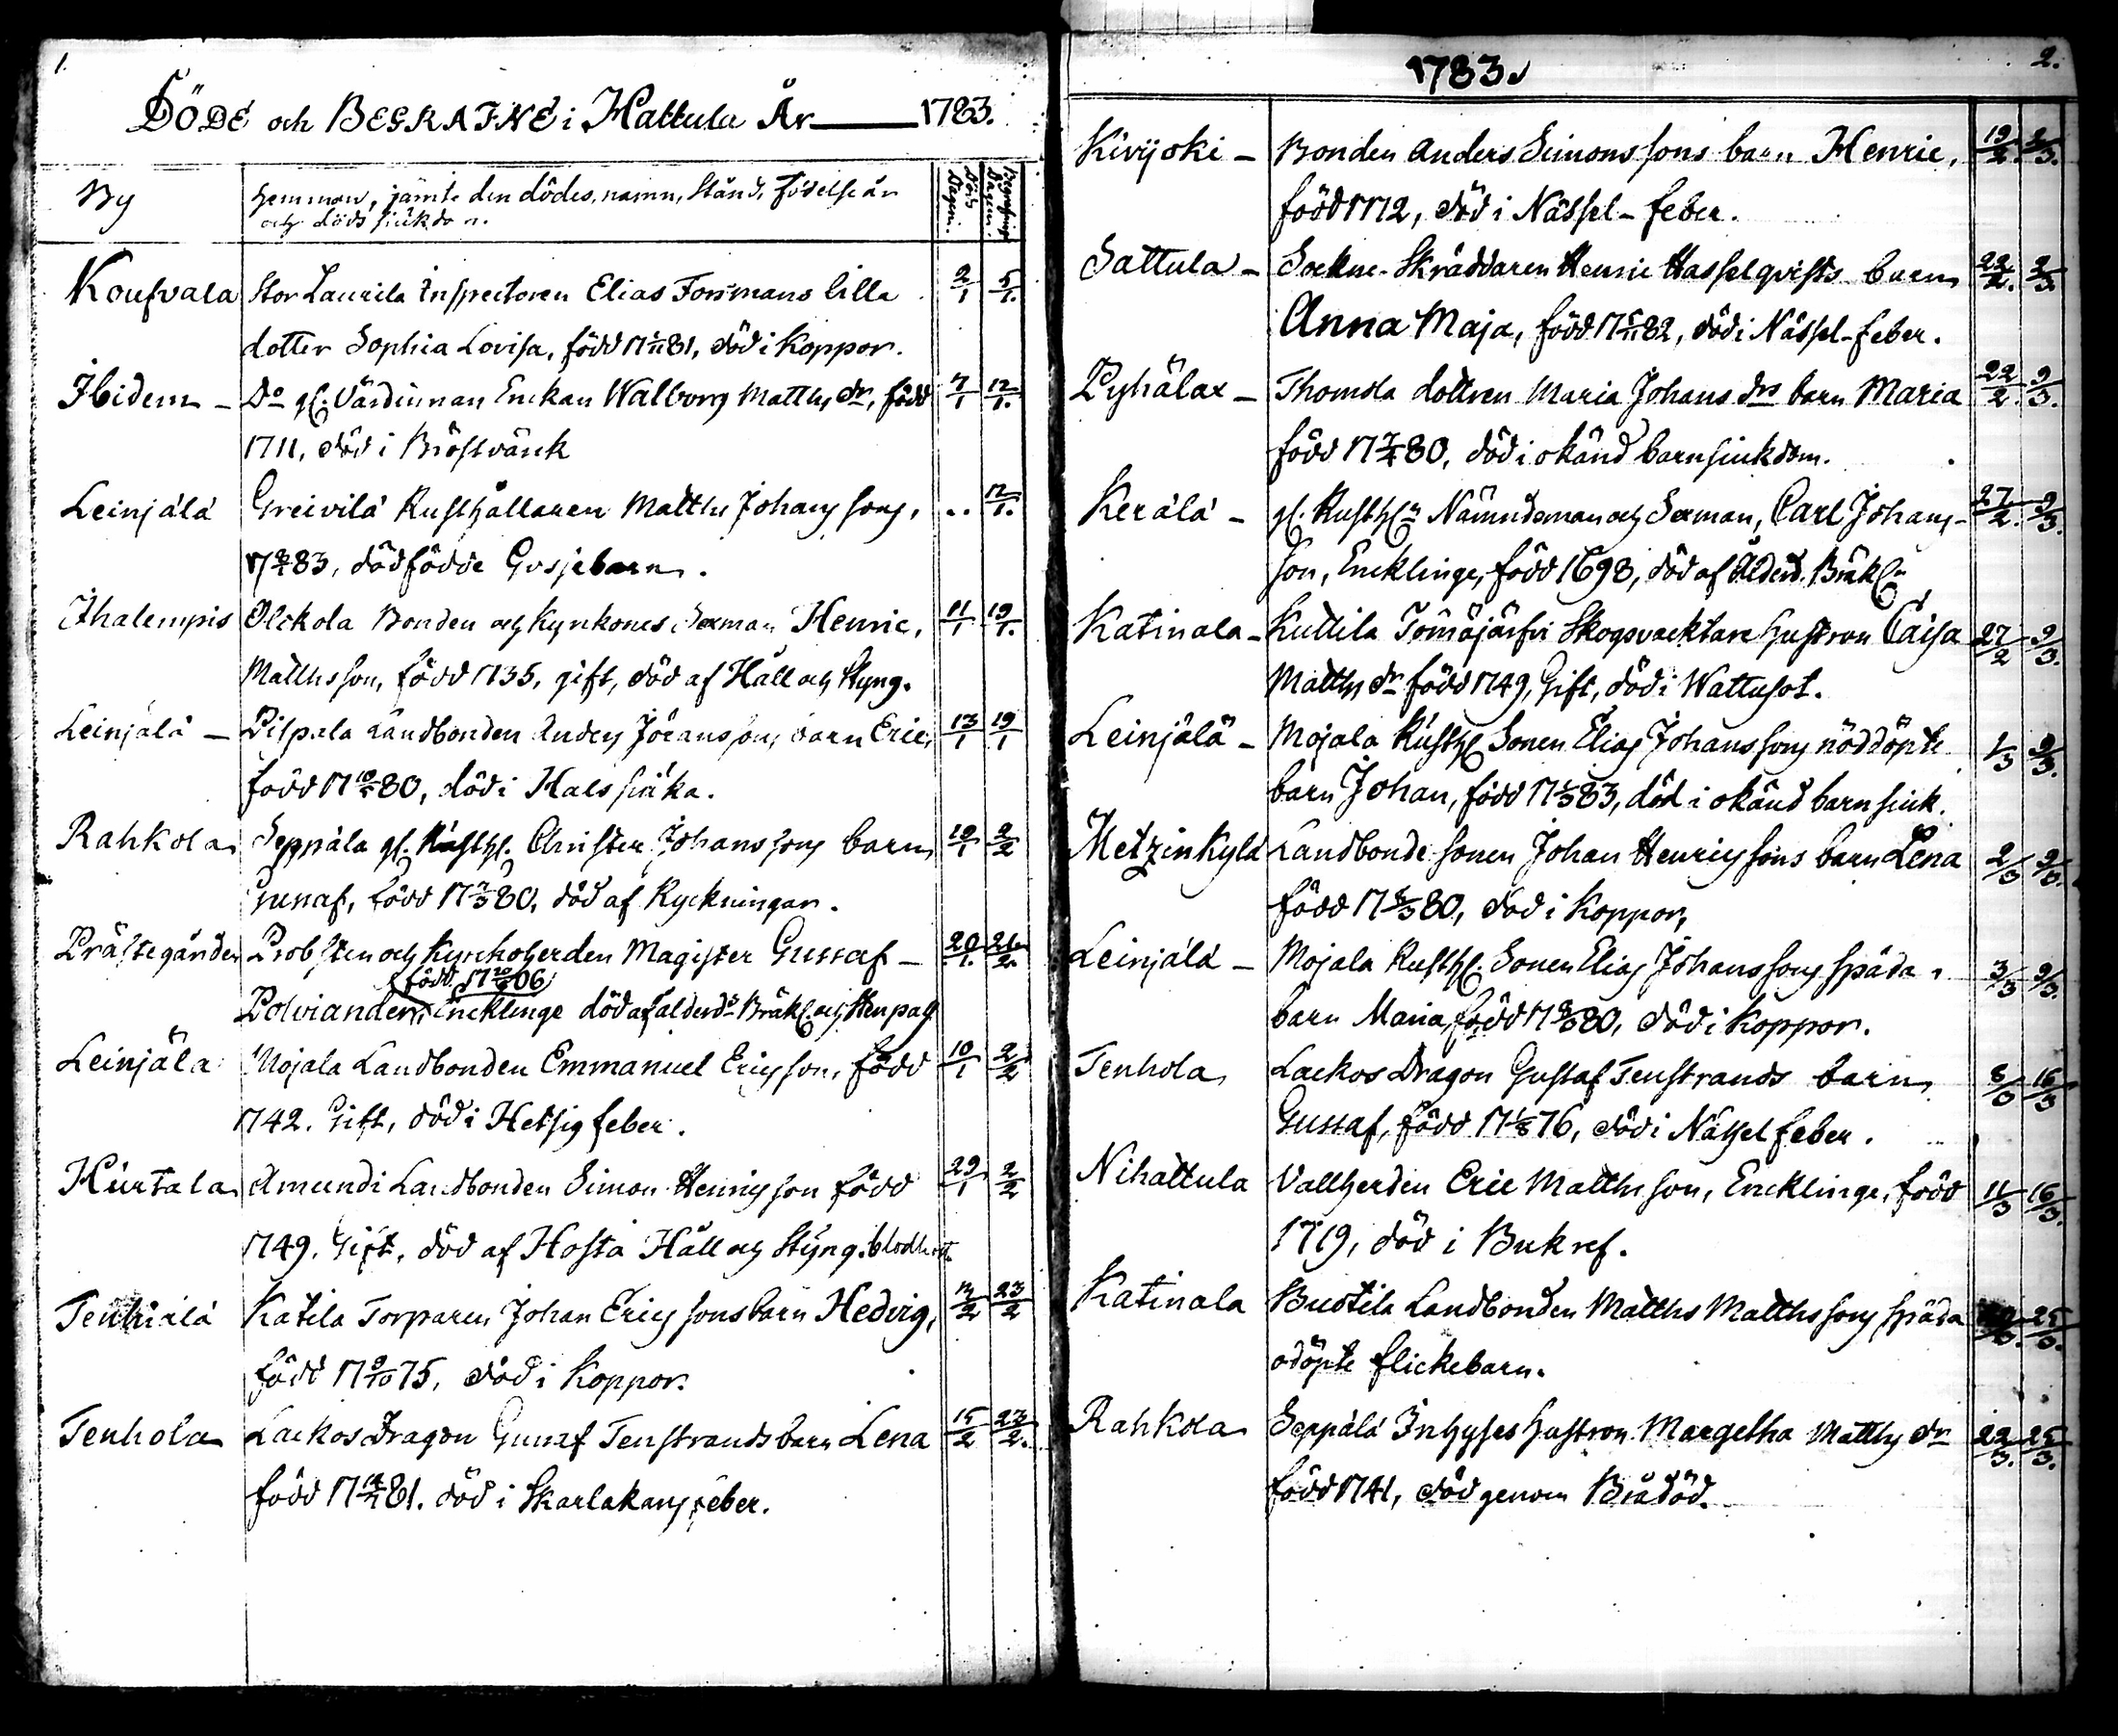 1.
DÖDE och BEGRAFNE i Hattula År 1783.
By
Hemman, jämte den dödes namn, Stånd, födelse år
och döds siukdom.
Döds Dagen.
Begrafnings Dagen.
Koufvala Stor Laurila Inspectoren Elias Forsmans lilla 2/1 5/1.
dotter Sophia Lovisa, född 17 81, död i Koppor.
Ibidem - Do gl. Värdinnan Enkan Walborg Matths dr, född 7/1 12/1.
1711, död i Bröstvärck
Leinjälä Greivilä Rusthållaren Matths Johans sons, .. 12/1.
17 83, dödfödde Gossebarn.
Ihalempis Olckola Bonden och Kyrkones Sexman Henric, 11/1 19/1.
Matthsson, född 1735, gift, död af Håll och Styng.
Leinjälä - Pispala Landbonden Anders Jöransons barn Eric, 13/1 19/1
född 17 80, död i Halssiuka.
Rahkola Seppälä gl. Rusthl. Christer Johanssons barn 19/1 2/2
Gustaf, född 17 80, död af Ryckningar.
Prästegården Probsten och Kyrkoherden Magister Gustaf -
född 17 06
Polviander, Encklinge död af ålderds Bräkl. och
Leinjälä Mojala Landbonden Emmanuel Ericsson, född 10/1 2/2
1742. Gift, död i Hetsig feber.
Hurtala Amundi Landbonden Simon Henricsson född 29/1 2/2
1749. Gift, död af Hosta Håll och Styng.
Tenhiälä Katila Torparen Johan Ericssons barn Hedvig, 12/2 23/2
född 17 9/10 75, död i Koppor.
Tenhola Lackos Dragon Gustaf Tenstrands barn Lena 15/2 23/2.
född 17 81. död i Skarlakansfeber.
2.
1783.
Kivijoki - Bonden Anders Simonssons barn Henric, 19/2. 2/3.
född 1772, död i Nässel-feber.
Sattula - Sockne-Skräddaren Henric Hasselqvists barn 22/2. 2/3.
Anna Maja, född 17 82, död i Nässel-feber.
Pyhälax - Thomola dottren Maria Johans drs barn Maria 22/2. 9/3.
född 17 80, död i okänd barnsiukdom.
Kerälä - gl. Rusthln Nämndeman och Sexman, Carl Johans- 27/2. 9/3.
son, Encklinge, född 1698, död af Ålderd. Bräkln
Katinala - Kuttila Skogsvacktare hustron Caisa 27/2 9/3.
Matths dr född 1749, Gift, död i Wattusot.
Leinjälä - Mojala Rusthl Sonen Elias Johanssons nöddöpte 1/3 9/3.
barn Johan, född 17 1/3 83, död i okänd barnsiuk.
Metzinkylä Landbonde sonen Johan Henricssons barn Lena 2/3 9/3.
född 17 80, död i Koppor,
Leinjälä - Mojala Rusthl. Sonen Elias Johanssons späda 3/3 9/3.
barn Maria, född 17 80, död i Koppor.
Tenhola Lackos Dragon Gustaf Tenstrands barn 8/3 16/3
Gustaf, född 17 76, död i Nässelfeber.
Nihattula Vallherden Eric Matthsson, Encklinge, född 11/3 16/3.
1719, död i Bukref.
Katinala Landbonden Matths Matthssons späda 25/3.
odöpte flickebarn.
Rahkola Seppälä Inhyses hustron Margetha Matths dr 22/3. 25/3.
född 1741, död genom Brådöd.